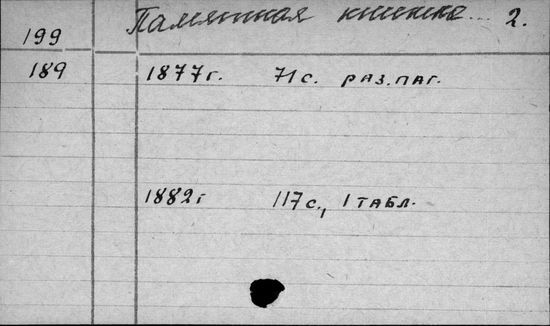 199 Памятная книжка... 2.
189 1877г. 71с. раз. паг.
1882г 117с., 1 табл.